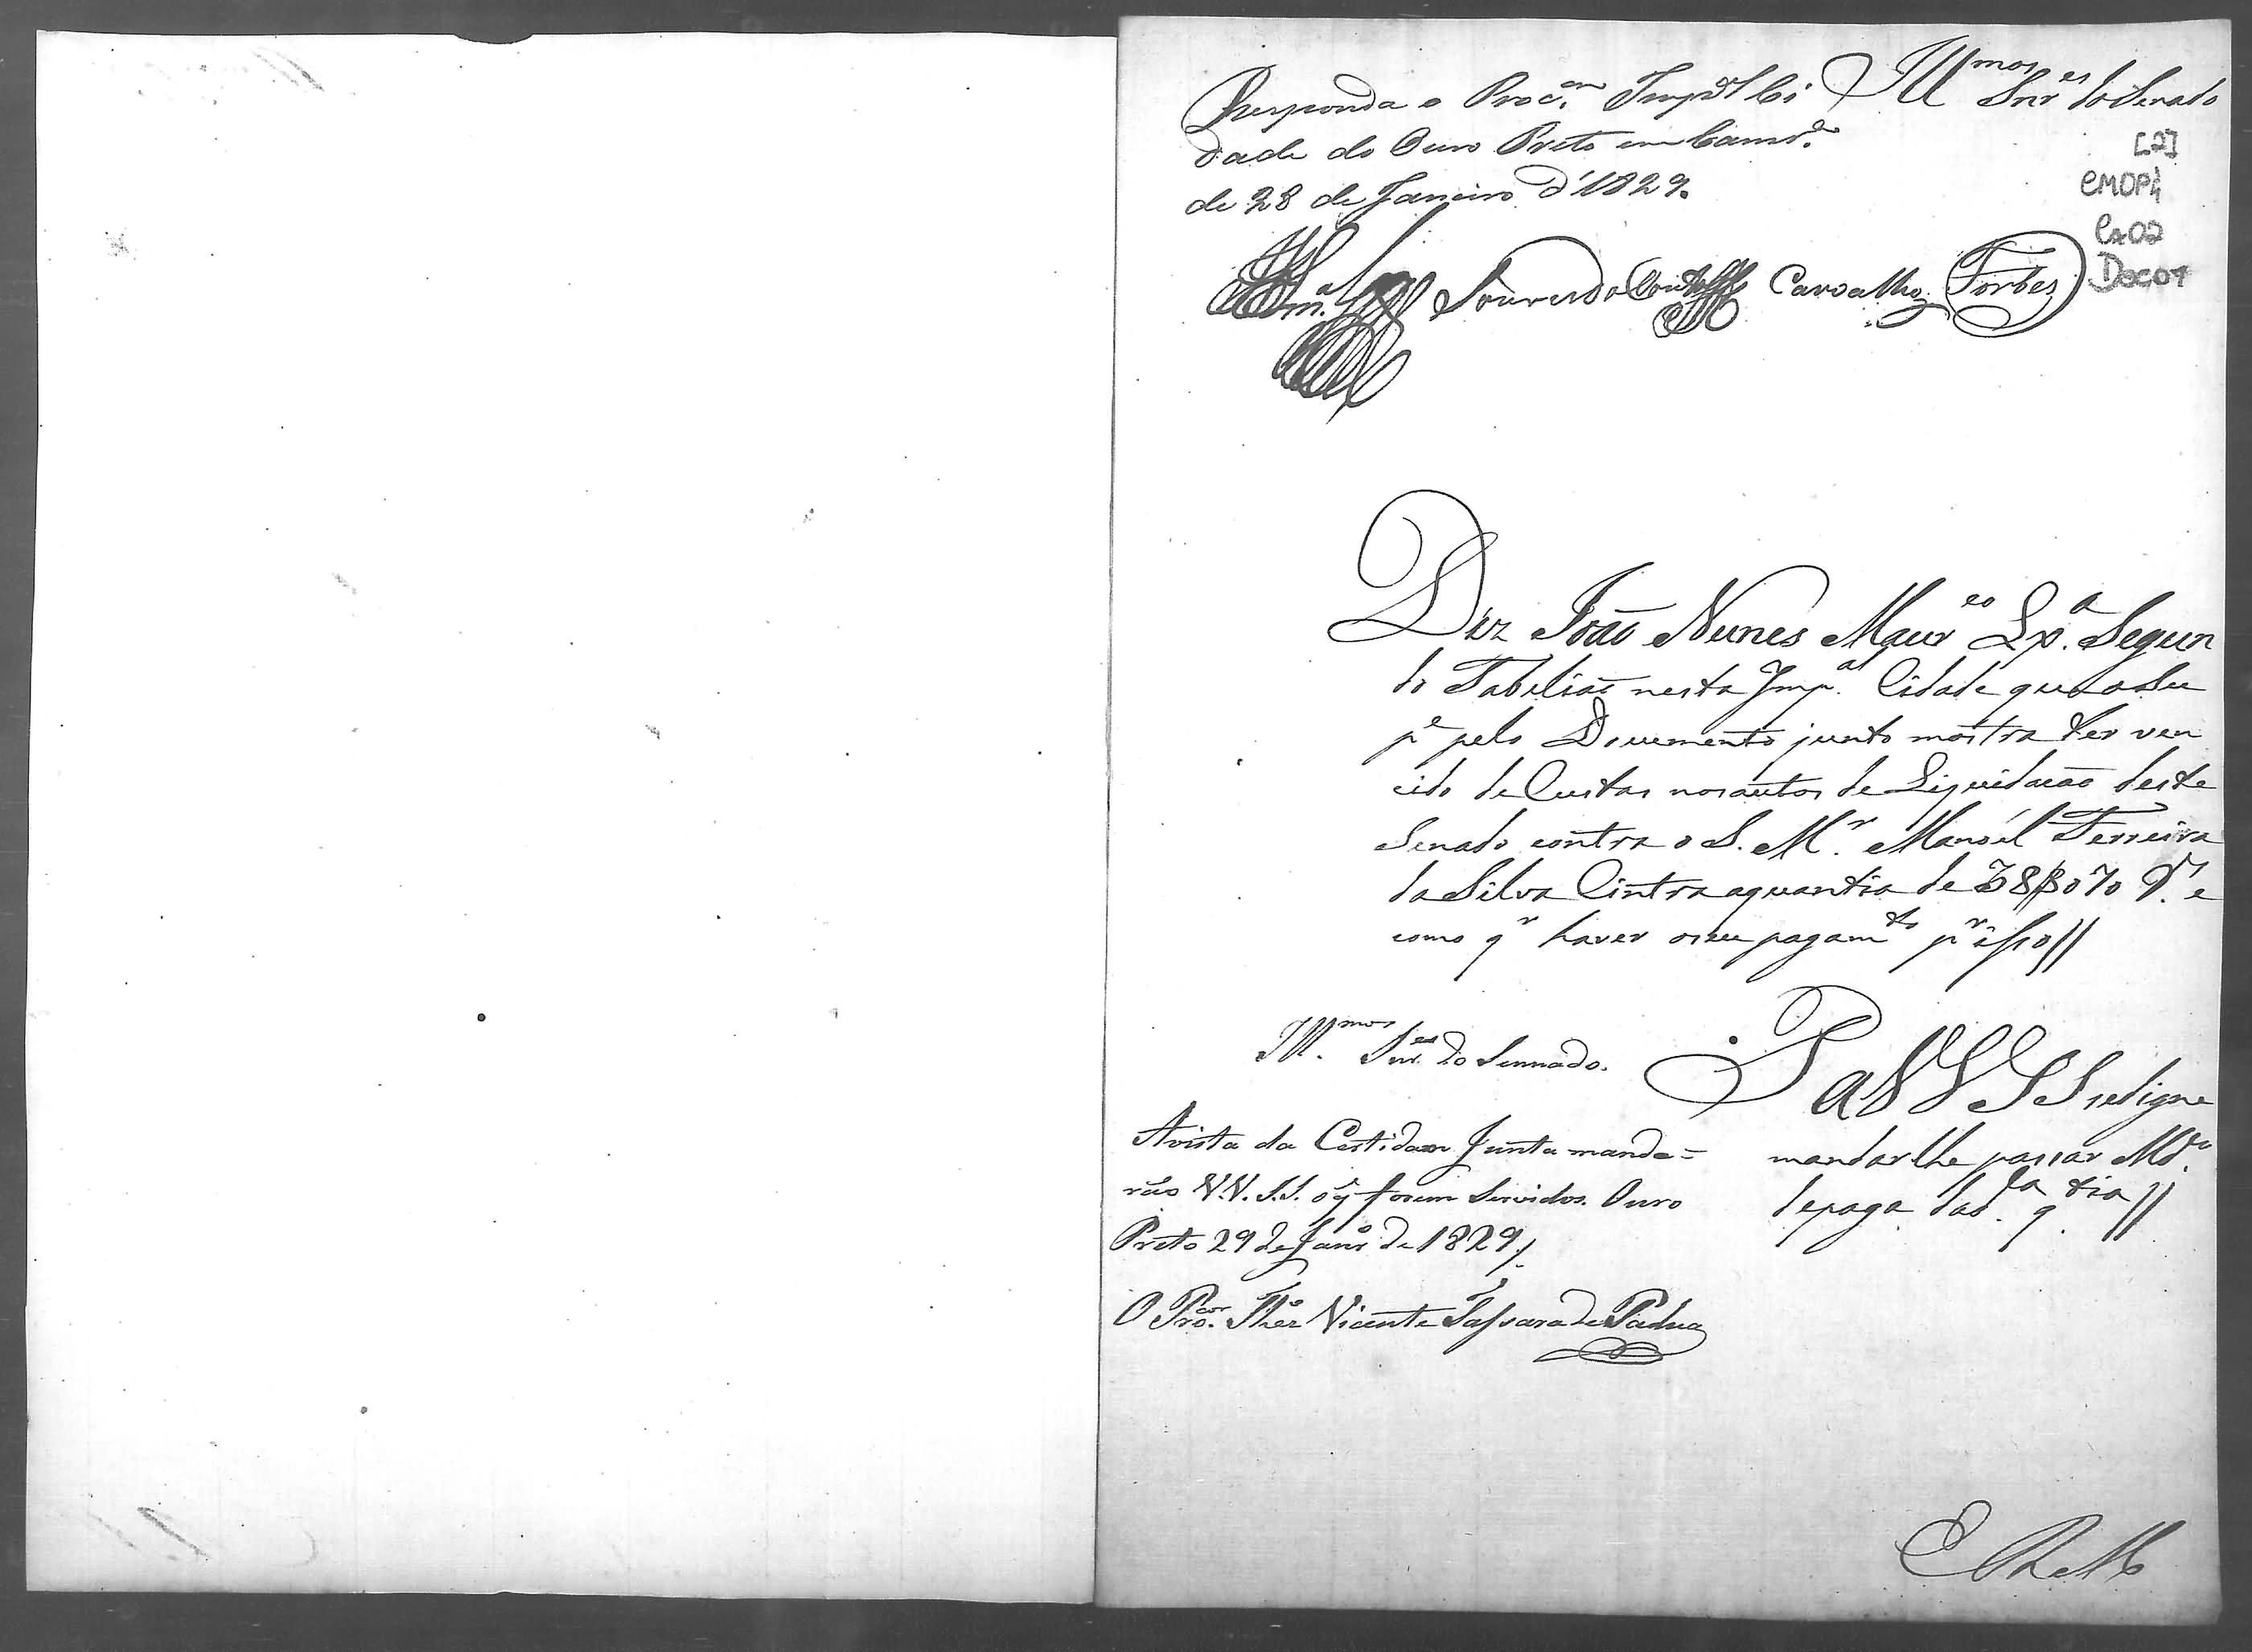 Responda o Proc.or Imp.al Ci
dade do Ouro Preto em Camr.a
de 28 de Janeiro d'1829.
Ill.mos Snr.es do Senado
[2]
CMOP4
Cx02
Doc07
Carvalho Forbes
Diz João Nunes Maur.co Lx.a Segun
do Tabeliaõ nesta Imp.al Cidade que o Su
p.e pelo Documento junto mostra ter ven
cido de Custas nos autos de Liquidacaõ deste
Senado contra o S. M.r Manoel Ferreira
da Silva Cintra a quantia de 38$070 r.s e
como q.r haver o seu pagam.to p.r isso //
P a V V S S se digne
mandar lhe passar M.do
de paga da d.a q.tia //
Ill.mos Snr.es do Sennado.
Avista da Certidam Junta manda=
rão V.V. S.S. o q̃ forem Servidos. Ouro
Preto 29 de Janr.o de 1829.
O Pro.cor Thez.o Vicente Tassara de Padua
E R M